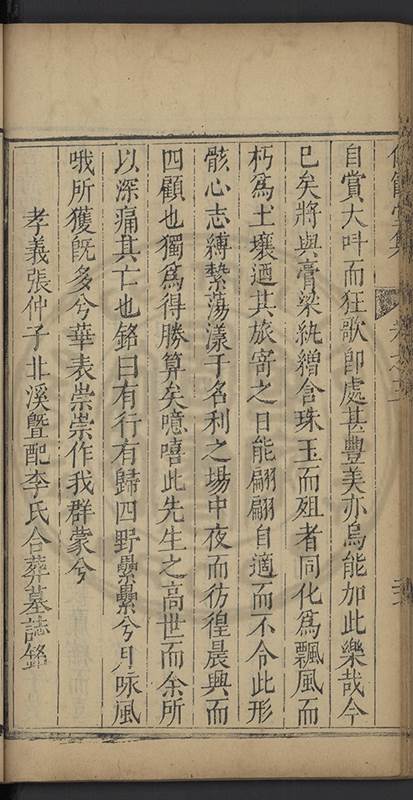 自賞大呌而狂歌卽處甚豐美亦烏能加此樂哉今
已矣將與膏梁紈繒含珠玉而殂者同化爲飄風而
朽爲土壤迺其旅寄之日能翩翩自適而不令此形
骸心志縛縶蕩漾于名利之場中夜而彷徨晨興而
四顧也獨爲得勝算矣噫嘻此先生之高世而余所
以深痛其亡也銘曰有行有歸四野纍纍兮月咏風
哦所獲旣多兮華表崇崇作我群蒙兮
孝義張仲子北溪曁配李氏合葬墓誌銘